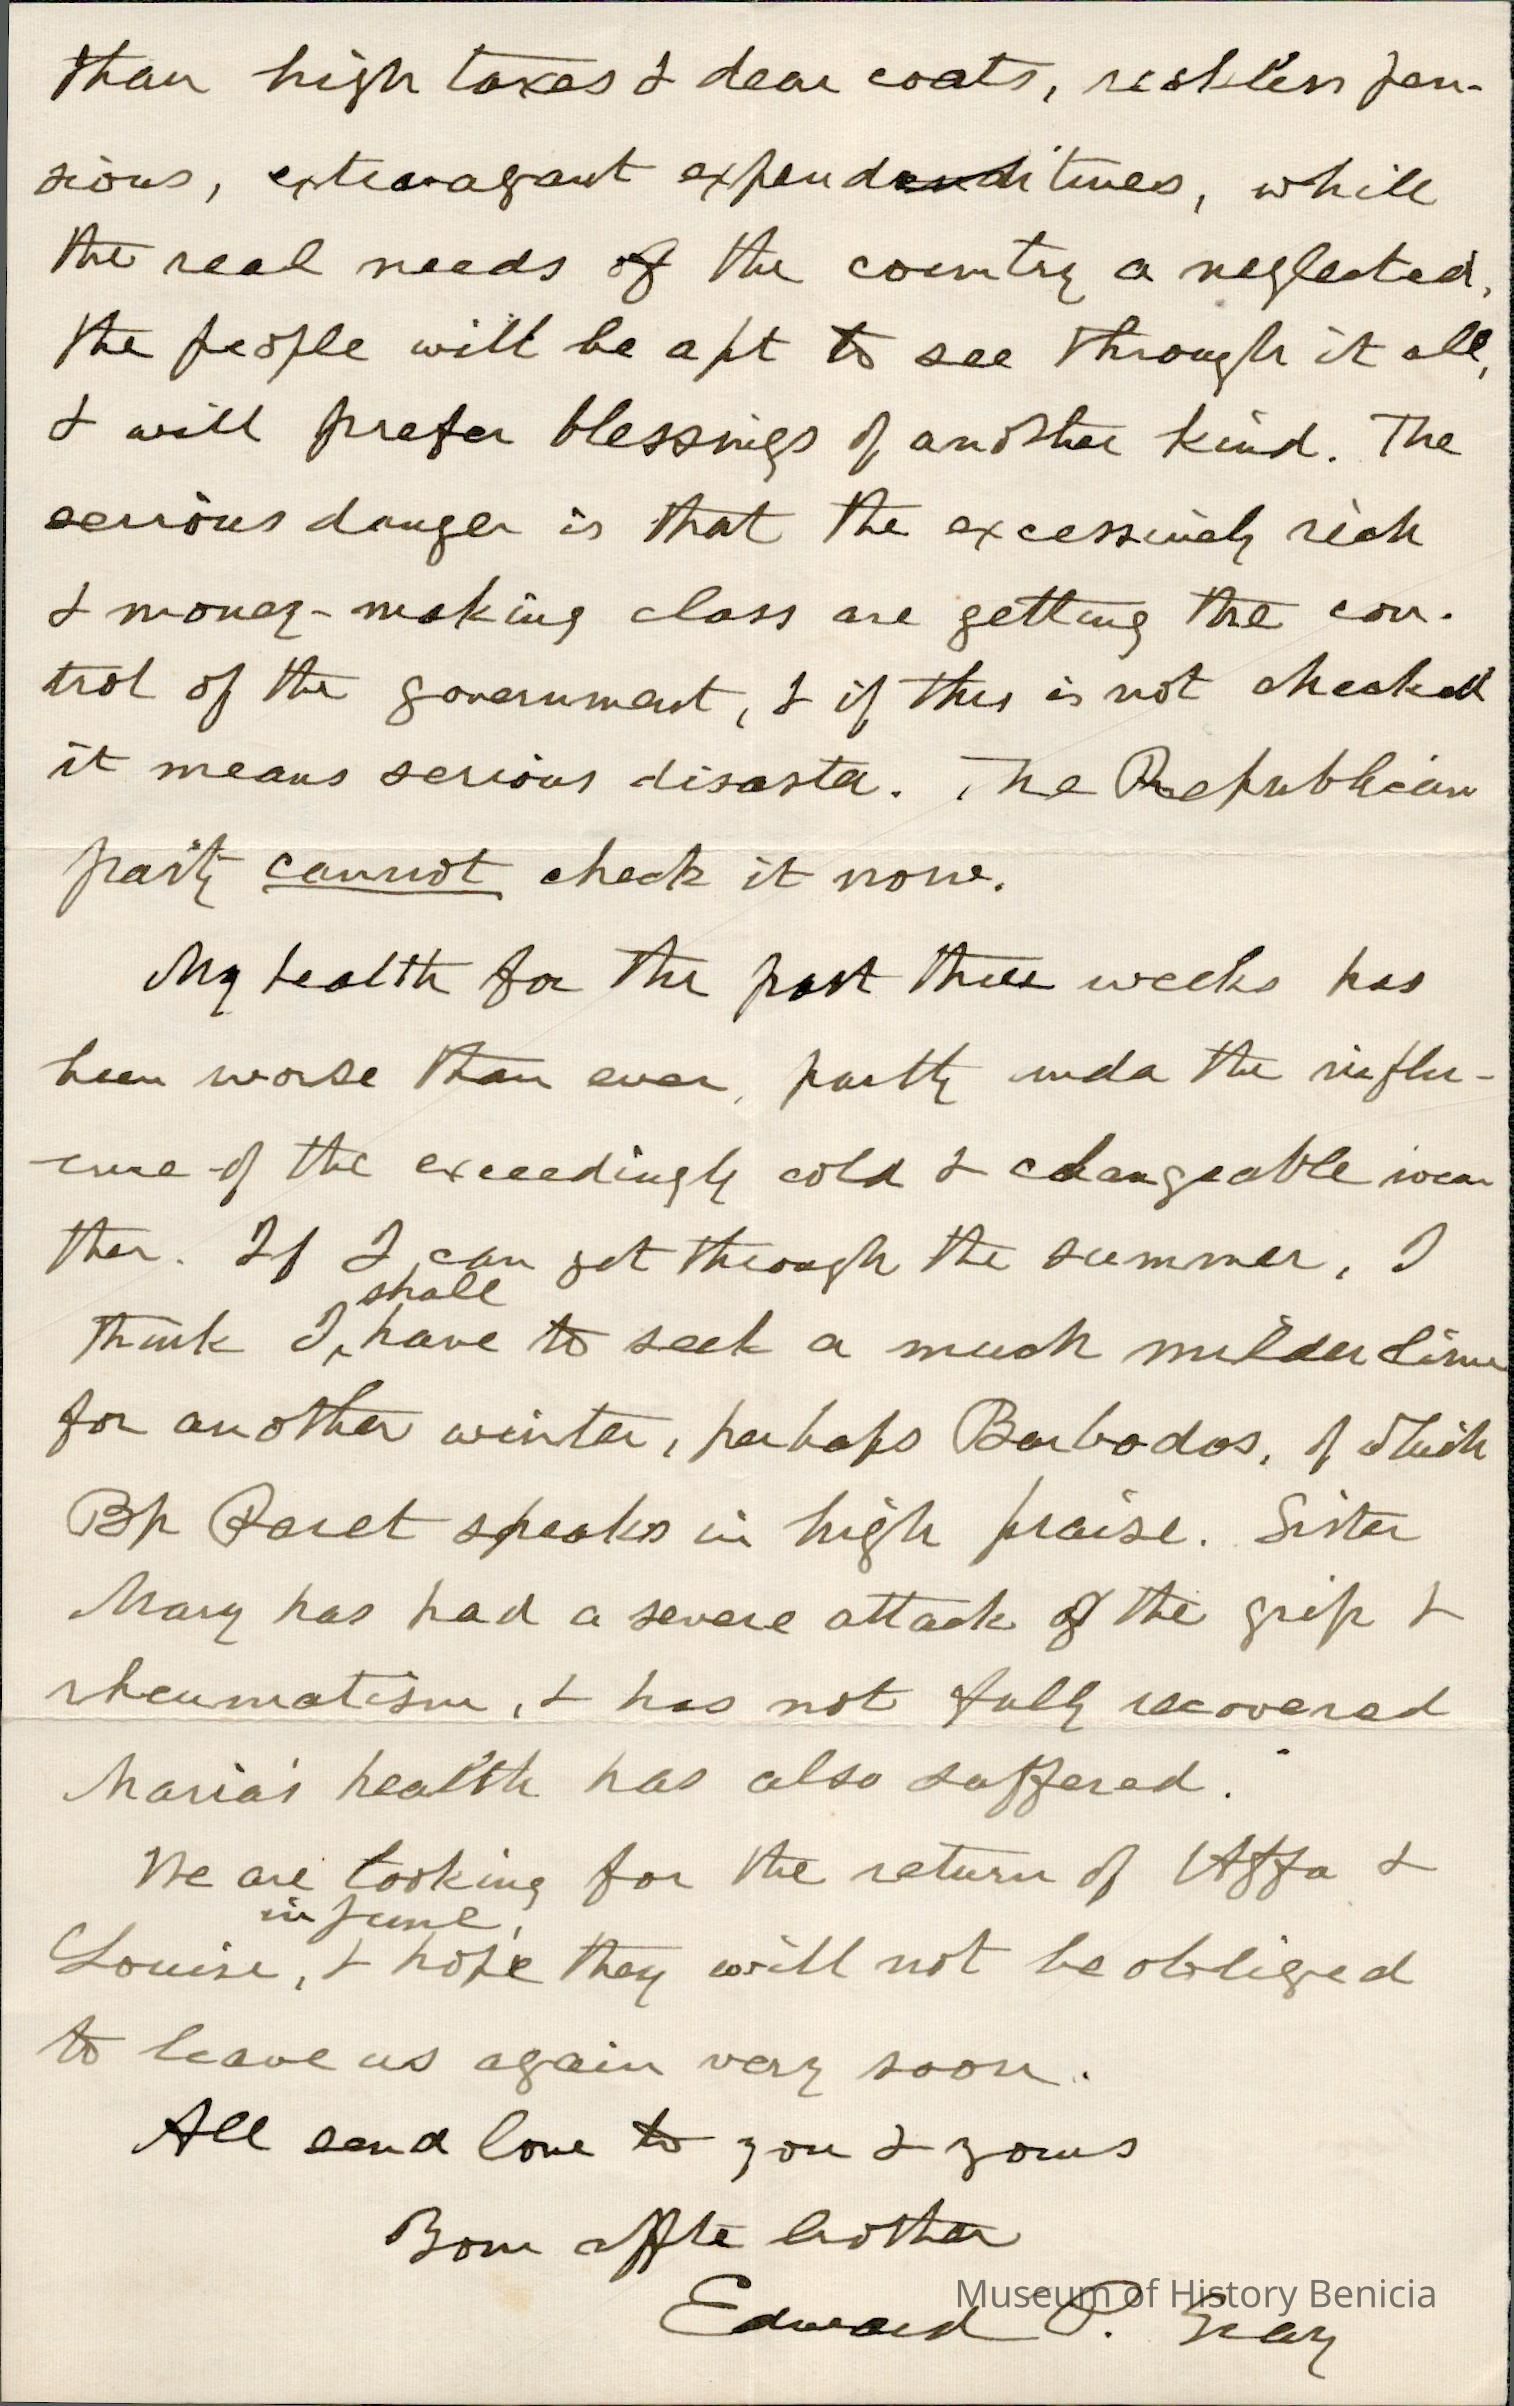 than high taxes & dear coats, reckless pen-
sions, extravagant expendenditures, while
the real needs of the country a neglected,
the people will be apt to see through it all,
& will prefer blessings of another kind. The
serious danger is that the excessively rich
& money-making class are getting the con-
trol of the government, & if this is not checked
it means serious disaster. The Republican
party cannot check it now.
My health for the past three weeks has
been worse than ever, partly under the influ-
-ence of the exceedingly cold & changeable wea
ther. If I can get through the summer, I
shall
think I have to seek a much milder clime
for another winter, perhaps Barbados, of which
Bp Paret speaks in high praise. Sister
Mary has had a severe attack of the grip &
rheumatism, & has not fully recovered
Maria's health has also suffered.
We are looking for the return of &
in June,
Louise, & hope they will not be obliged
to leave us again very soon.
All send love to you & yours
Your affte brother
Edward P. Gray
Museum of History Benicia